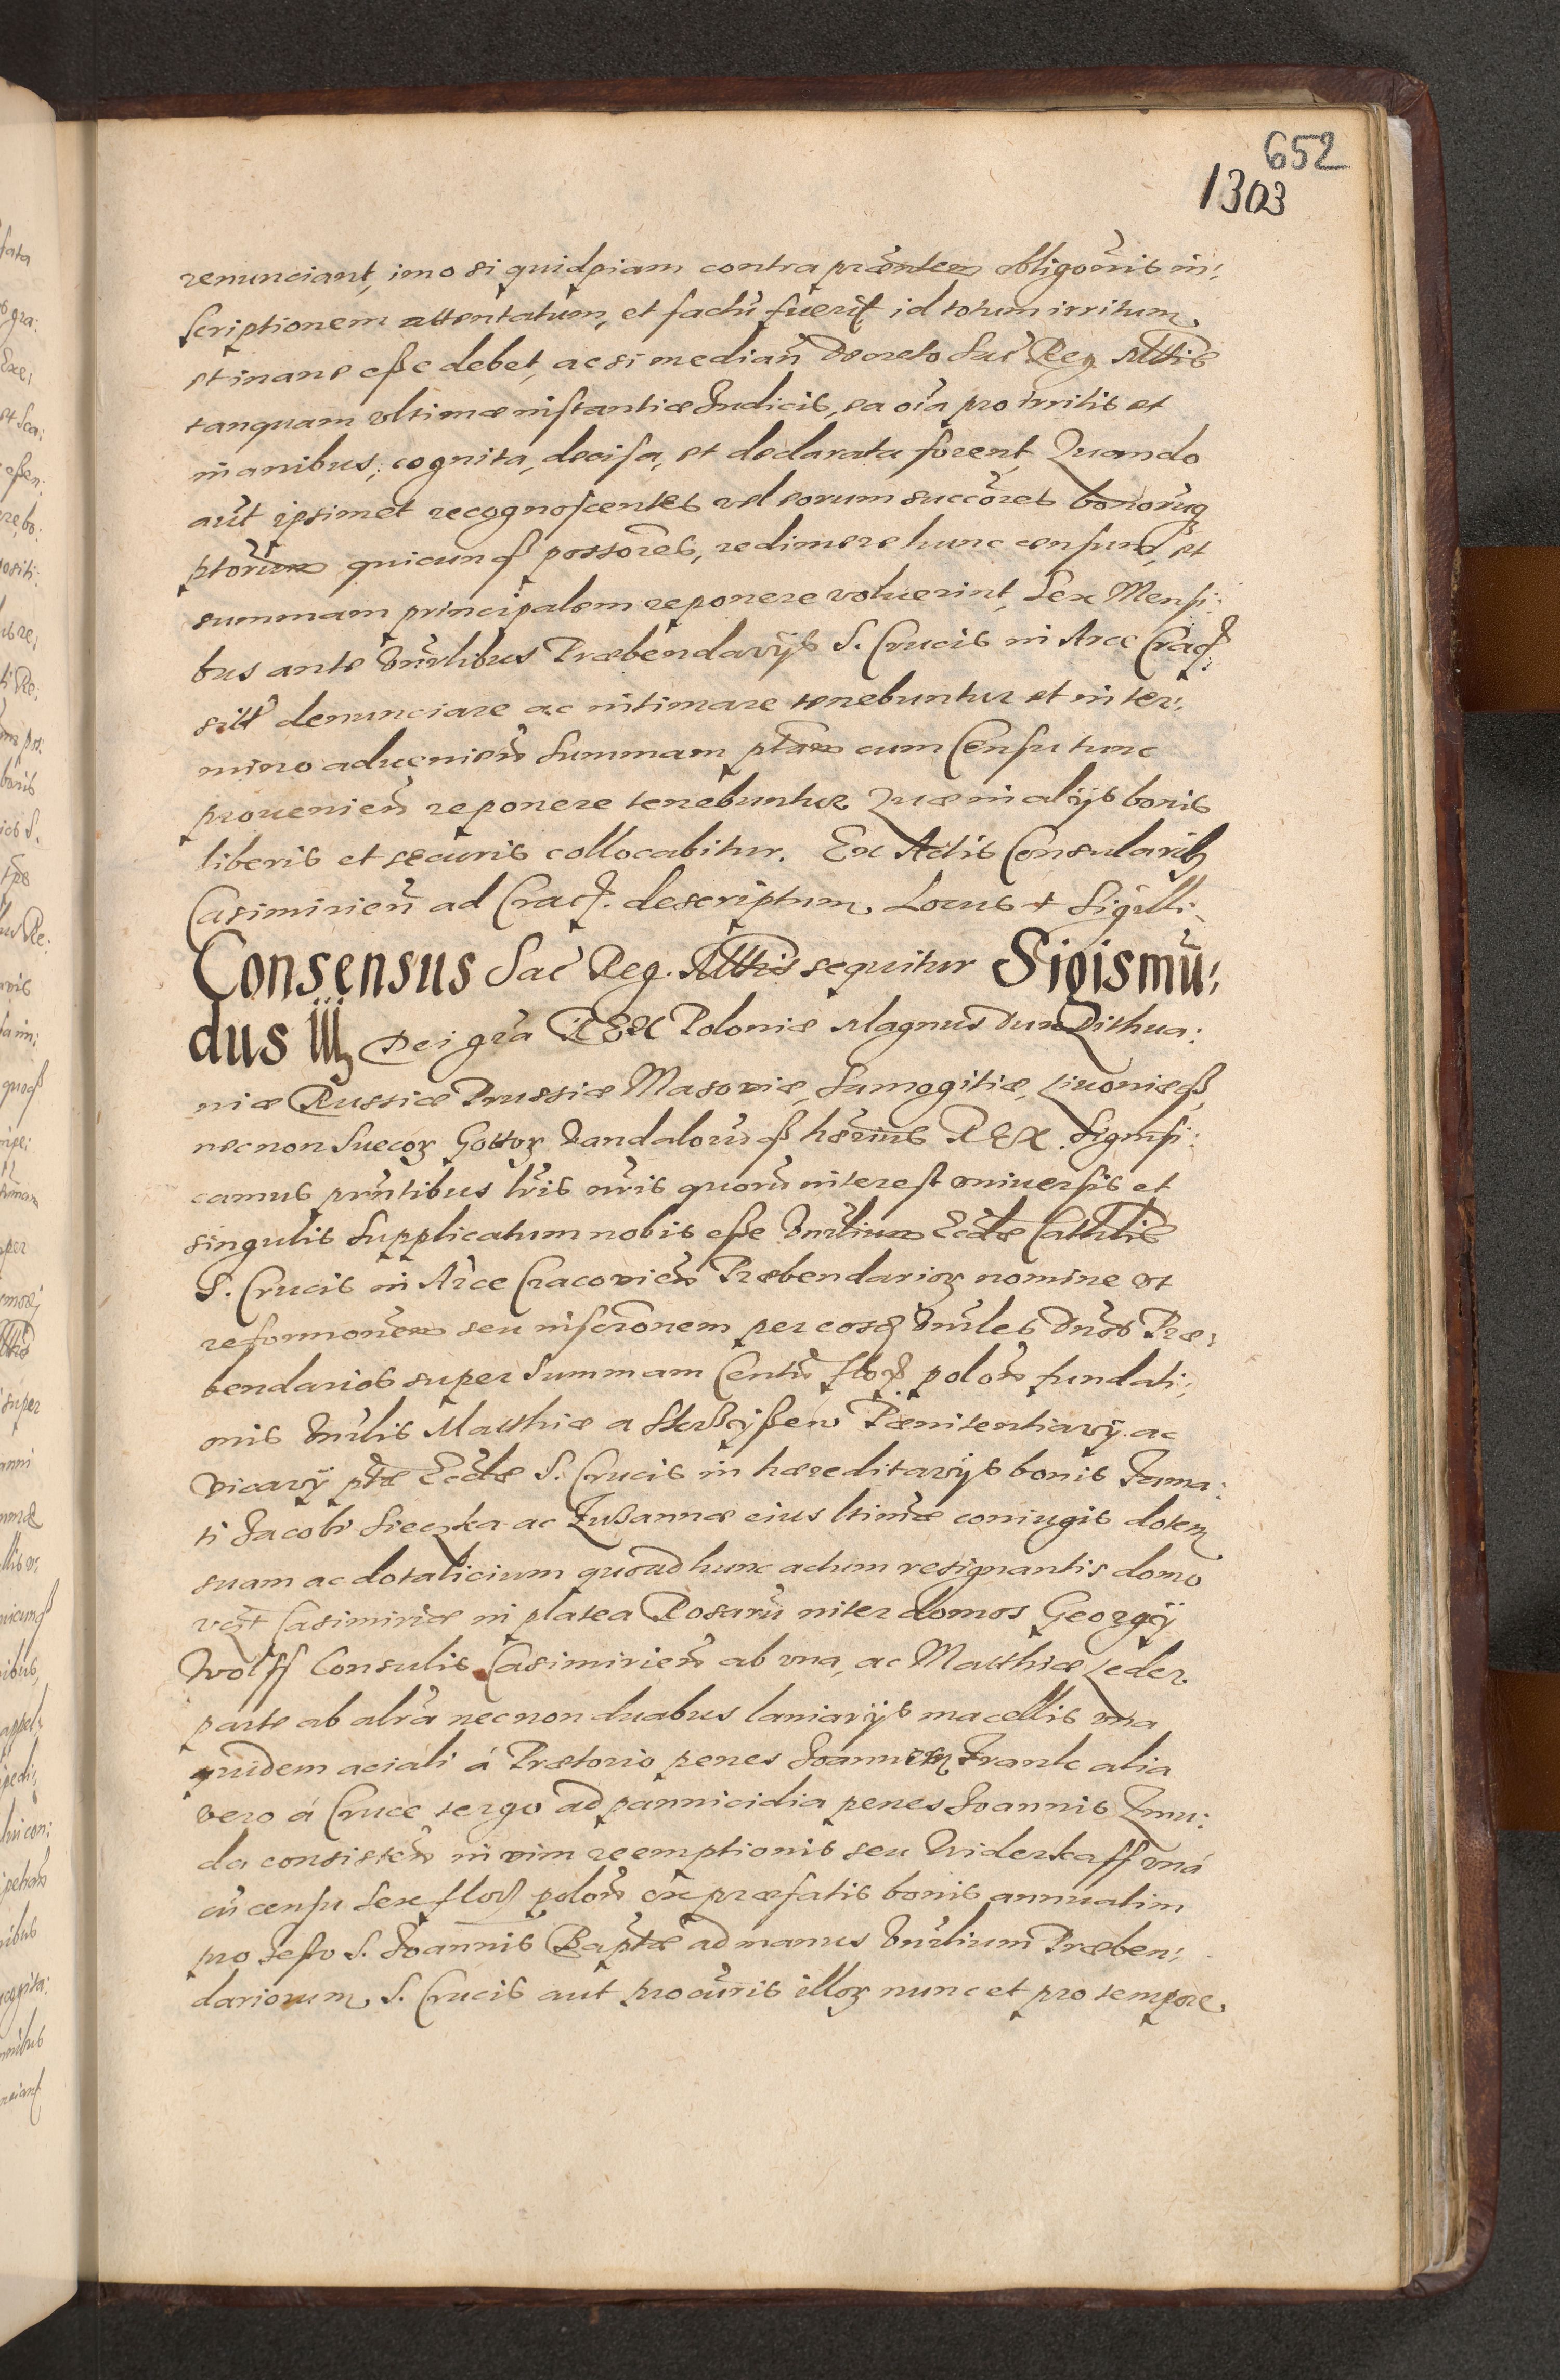 652
1303
renunciant, imo si quidpiam contra præntem obligoñis in:
scriptionem attentatum, et factũ fuerit id totum irritum
et inane esse debet, ac si median̄ Decreto Sac̃ Reg Mttis
tanquam vltimæ instantiæ Judicis, ea oĩa pro irritis et
inanibus, cognita, decisa, et declarata forent, Quando
aut̃ ipsimet recognoscentes vel eorum succõres bonorũq
ptõrum quicunq possores, redimere hunc censum, et
summam principalem reponere voluerint, Sex Mensi:
bus ante Vnrlibus Præbendarijs S. Crucis in Arce Crac̃:
silr̃ denunciare ac intimare tenebuntur et in ter:
mino adueniẽn Summam ptãm cum Censu tunc
prouenien̄ reponere tenebuntur Quæ in alijs bonis
liberis et securis collocabitur. Ex Actis Consularib9
Casimirien̄ ad Crac̃. descriptum. Locus + Sigilli
Consensus Sac̃ Reg. Mttis sequitur Sigismũ:
dus III Dei grã REX Poloniæ Magnus Dux Lithua:
niæ Russiæ Prussiæ Masoviæ, Samogitiæ, Liuoniæq,
necnon Suecoꝝ Gottoꝝ Vandalorũq hærius REX. Signifi:
camus præntibus lr̃is nr̃is quorũ interest vniuersis et
singulis Supplicatum nobis esse Vnrlium Ecclæ Cathlis
S. Crucis in Arce Cracovien̄ Præbendarioꝝ nomine vt
reformõnem seu inscrõnem per eosd Vnrles Dnõs Præ:
bendarios super Summam Centũ flor̃. polon̄ fundati:
onis Vnrlis Matthiæ a Pænitentiarij ac
Vicarij ptæ Ecclæ S. Crucis in hæreditarijs bonis Fama:
ti Jacobi Sieczka ac Zusannæ eius ltimæ coniugis dotem
suam ac dotalicium quoad hunc actum resignantis domo
vest Casimiriæ in platea Rosarũ inter domos Georgij
Wolff Consulis Casimirien̄ ab vna, ac Matthiæ Leder
parte ab altrã necnon duabus laniarijs macellis vna
quidem aciali á Prætorio penes Joannem Frank alia
vero á Cruce tergo ad pannicidia penes Joannis Zmu:
da consisten̄ in vim reemptionis seu Widerkaff vná
cũ censu Sex flor̃ polon̄ ex præfatis bonis annuatim
pro Festo S. Joannis Baptæ ad manus Vnrlium Præben:
dariorum S. Crucis aut procũris illoꝝ nunc et pro tempore